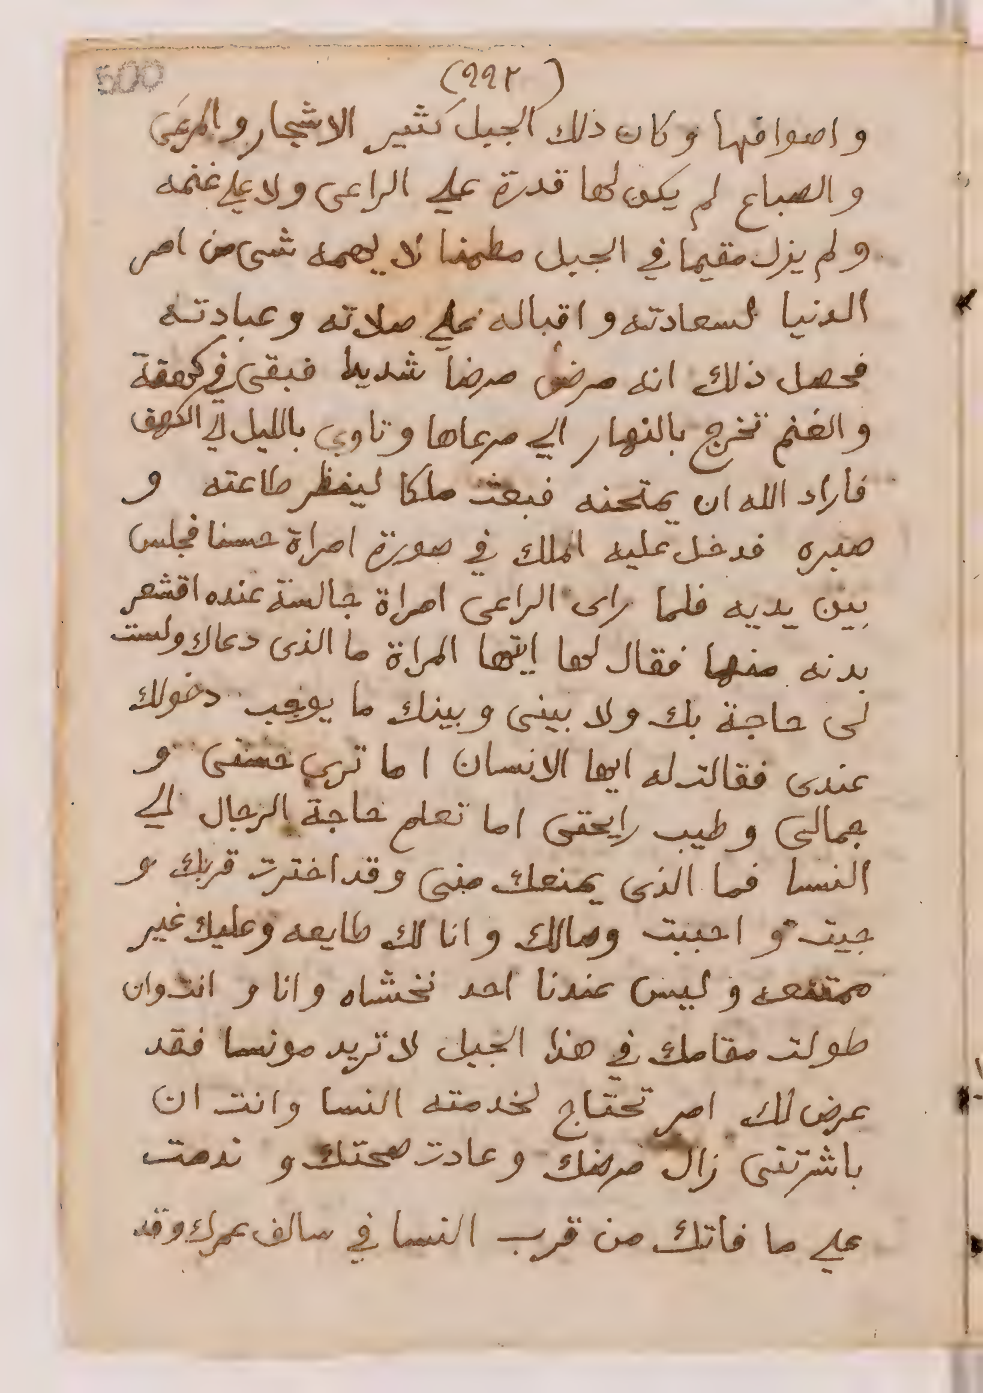 500
(٩٩٢)
و اصوافها و كان ذلك الجبل كثير الاشجار و المرعى
و الصباع لم يكن لها قدرة علي الراعى ولا علي غنمه
و لم يزل مقيما في الجبل مطمنا لا يهمه شى من امر
الدنيا لسعادته و اقباله علي صلاته و عبادته
فحصل ذلك انه مرض مرضا شديدا فبقى في كهفه
و الغنم تخرج بالنهار الي مرعاها و تاوي بالليل الي الكهف
فاراد الله ان يمتحنه فبعث ملكا لينظر طاعته و
صبره فدخل عليه الملك في صورة امراة حسنا فجلس
بين يديه فلما راى الراعى امراة جالسة عنده اقشعر
بدنه منها فقال لها ايتها المراة ما الذى دعاك ولست
لى حاجة بك ولا بينى و بينك ما يوجب دخولك
عندى فقالت له ايها الانسان اما تري حسنى و
جمالى و طيب رايحتى اما تعلم حاجة الرجال الي
النسا فما الذى يمنعك منى و قد اخترت قربك و
جيت و احببت وصالك و انا لك طايعه و عليك غير
ممتنعه و ليس عندنا احد نخشاه و انا و انت وان
طولت مقامك في هذا الجبل لا تريد مونسا فقد
عرض لك امر تحتاج لخدمته النسا و انت ان
باشرتنى زال مرضك و عادت صحتك و ندمت
علي ما فاتك من قرب النسا في سالف عمرك و قد